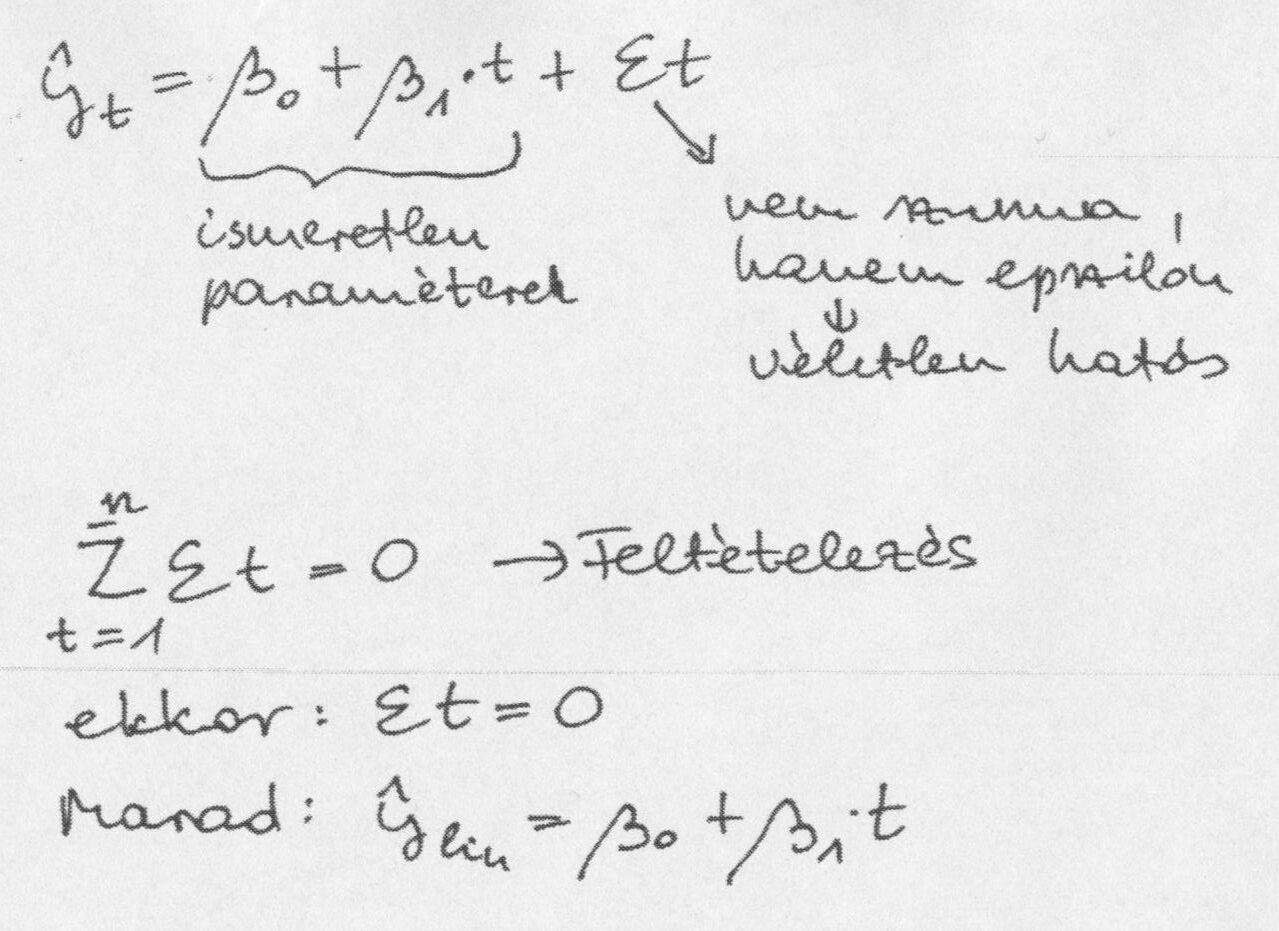 ŷt = β0 + β1·t + εt
ismeretlen
paraméterek
nem szumma,
hanem epszilón
↓
véletlen hatás
n
Σ εt = 0 → Feltételezés
t=1
ekkor: εt = 0
Marad: ŷlin = β0 + β1·t